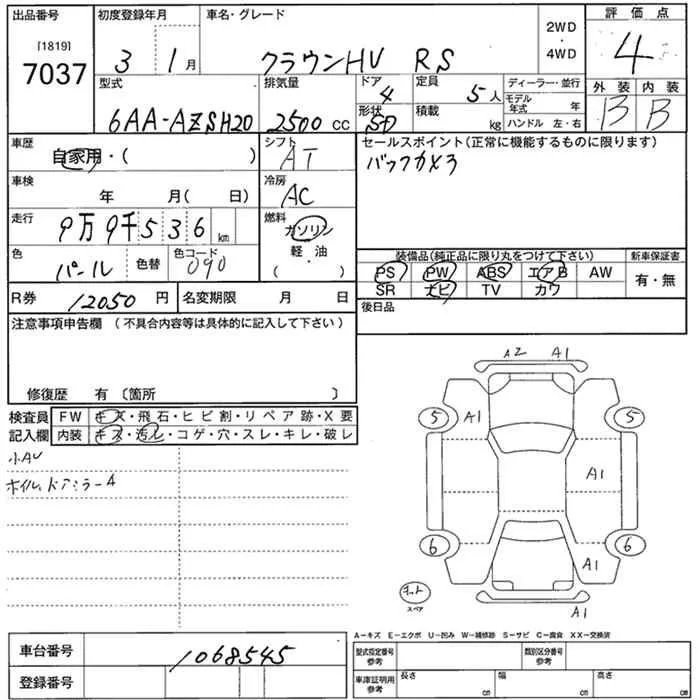 出品番号 初度登録年月 車名・グレード 2WD・4WD 評価点
[1819]
7037 3 1月 クラウンHV RS 4
型式 排気量 ドア 定員 ディーラー・並行 外装 内装
6AA-AZSH20 2500cc 4 5人 モデル年式 年 B B
形状 積載 ハンドル 左・右
SD kg
車歴 シフト セールスポイント(正常に機能するものに限ります)
自家用・( ) AT バックカメラ
車検 冷房
年 月( 日) AC
走行 燃料
9万9千536km ガソリン
色 色替 色コード 軽・油
パール 090 ( )
装備品(純正品に限り丸をつけて下さい) 新車保証書
PS PW ABS エアB AW 有・無
SR ナビ TV カワ
R券 12050円 名変期限 月 日 後日品
注意事項申告欄 (不具合内容等は具体的に記入して下さい)
修復歴 有 〔箇所 〕
検査員 FW キズ・飛石・ヒビ割・リペア跡・X要
記入欄 内装 キズ・汚レ・コゲ・穴・スレ・キレ・破レ
小AU
ホイル、ドアミラーA
A2 A1
5 A1 5
A1
6 6
A1
スペア
A1
A-キズ E-エクボ U-凹み W-補修跡 S-サビ C-腐食 XX-交換済
車台番号 1068545 型式指定番号 参考 類別区分番号 参考
登録番号 車庫証明用 参考 長さ cm 幅 cm 高さ cm